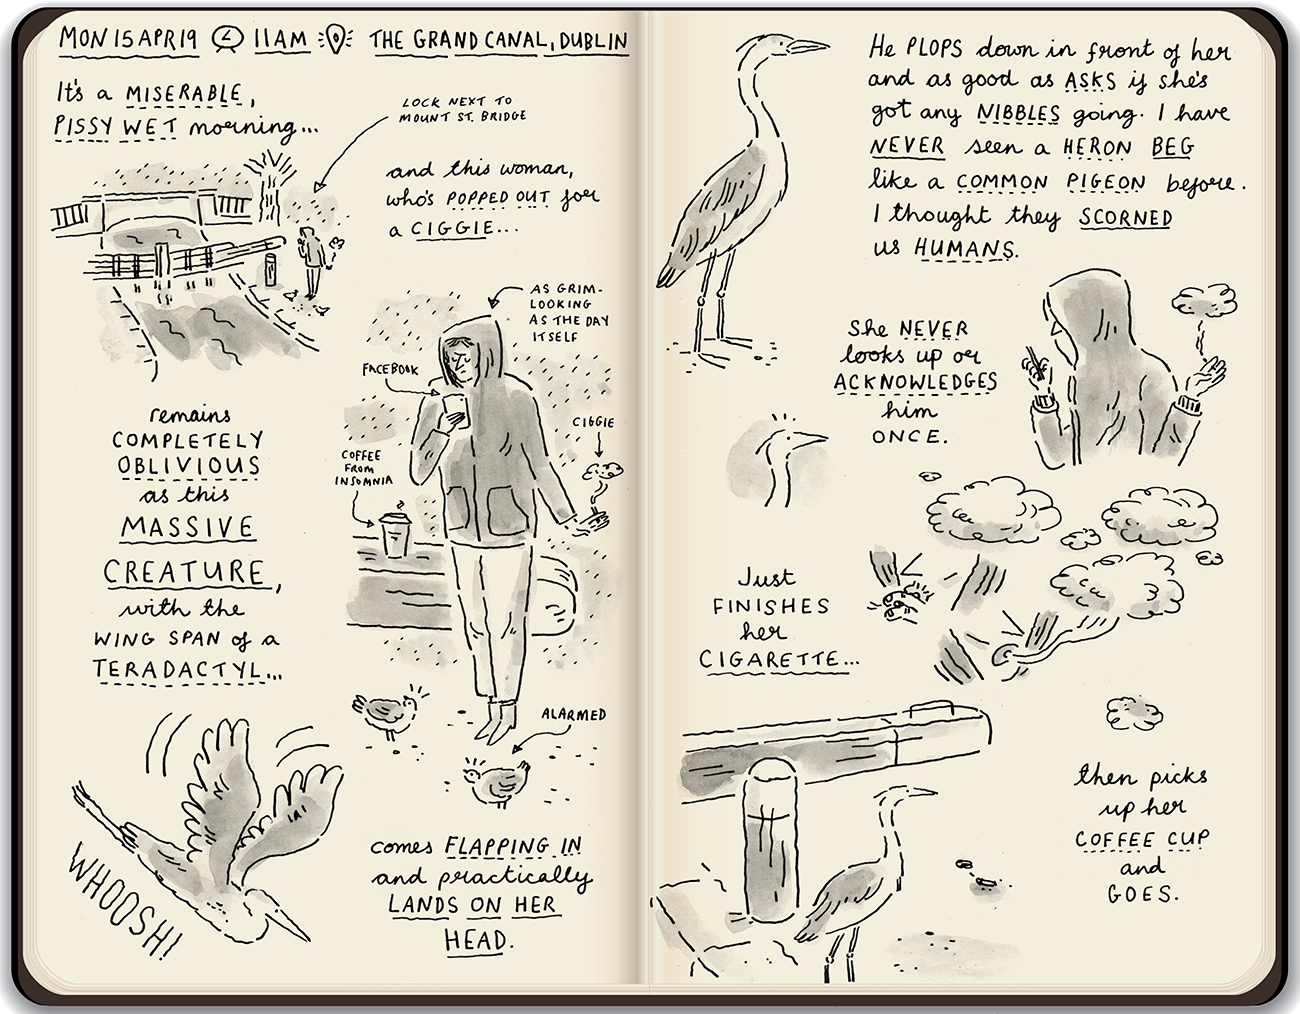 MON 15 APR 19 11AM THE GRAND CANAL, DUBLIN
It's a MISERABLE,
PISSY WET morning...
LOCK NEXT TO
MOUNT ST. BRIDGE
and this woman,
who's POPPED OUT for
a CIGGIE...
AS GRIM-
LOOKING
AS THE DAY
ITSELF
FACEBOOK
CIGGIE
COFFEE
FROM
INSOMNIA
remains
COMPLETELY
OBLIVIOUS
as this
MASSIVE
CREATURE,
with the
WING SPAN of a
TERADACTYL...
ALARMED
WHOOSH!
comes FLAPPING IN
and practically
LANDS ON HER
HEAD.
He PLOPS down in front of her
and as good as ASKS if she's
got any NIBBLES going. I have
NEVER seen a HERON BEG
like a COMMON PIGEON before.
I thought they SCORNED
us HUMANS.
She NEVER
looks up or
ACKNOWLEDGES
him
ONCE.
Just
FINISHES
her
CIGARETTE...
then picks
up her
COFFEE CUP
and
GOES.